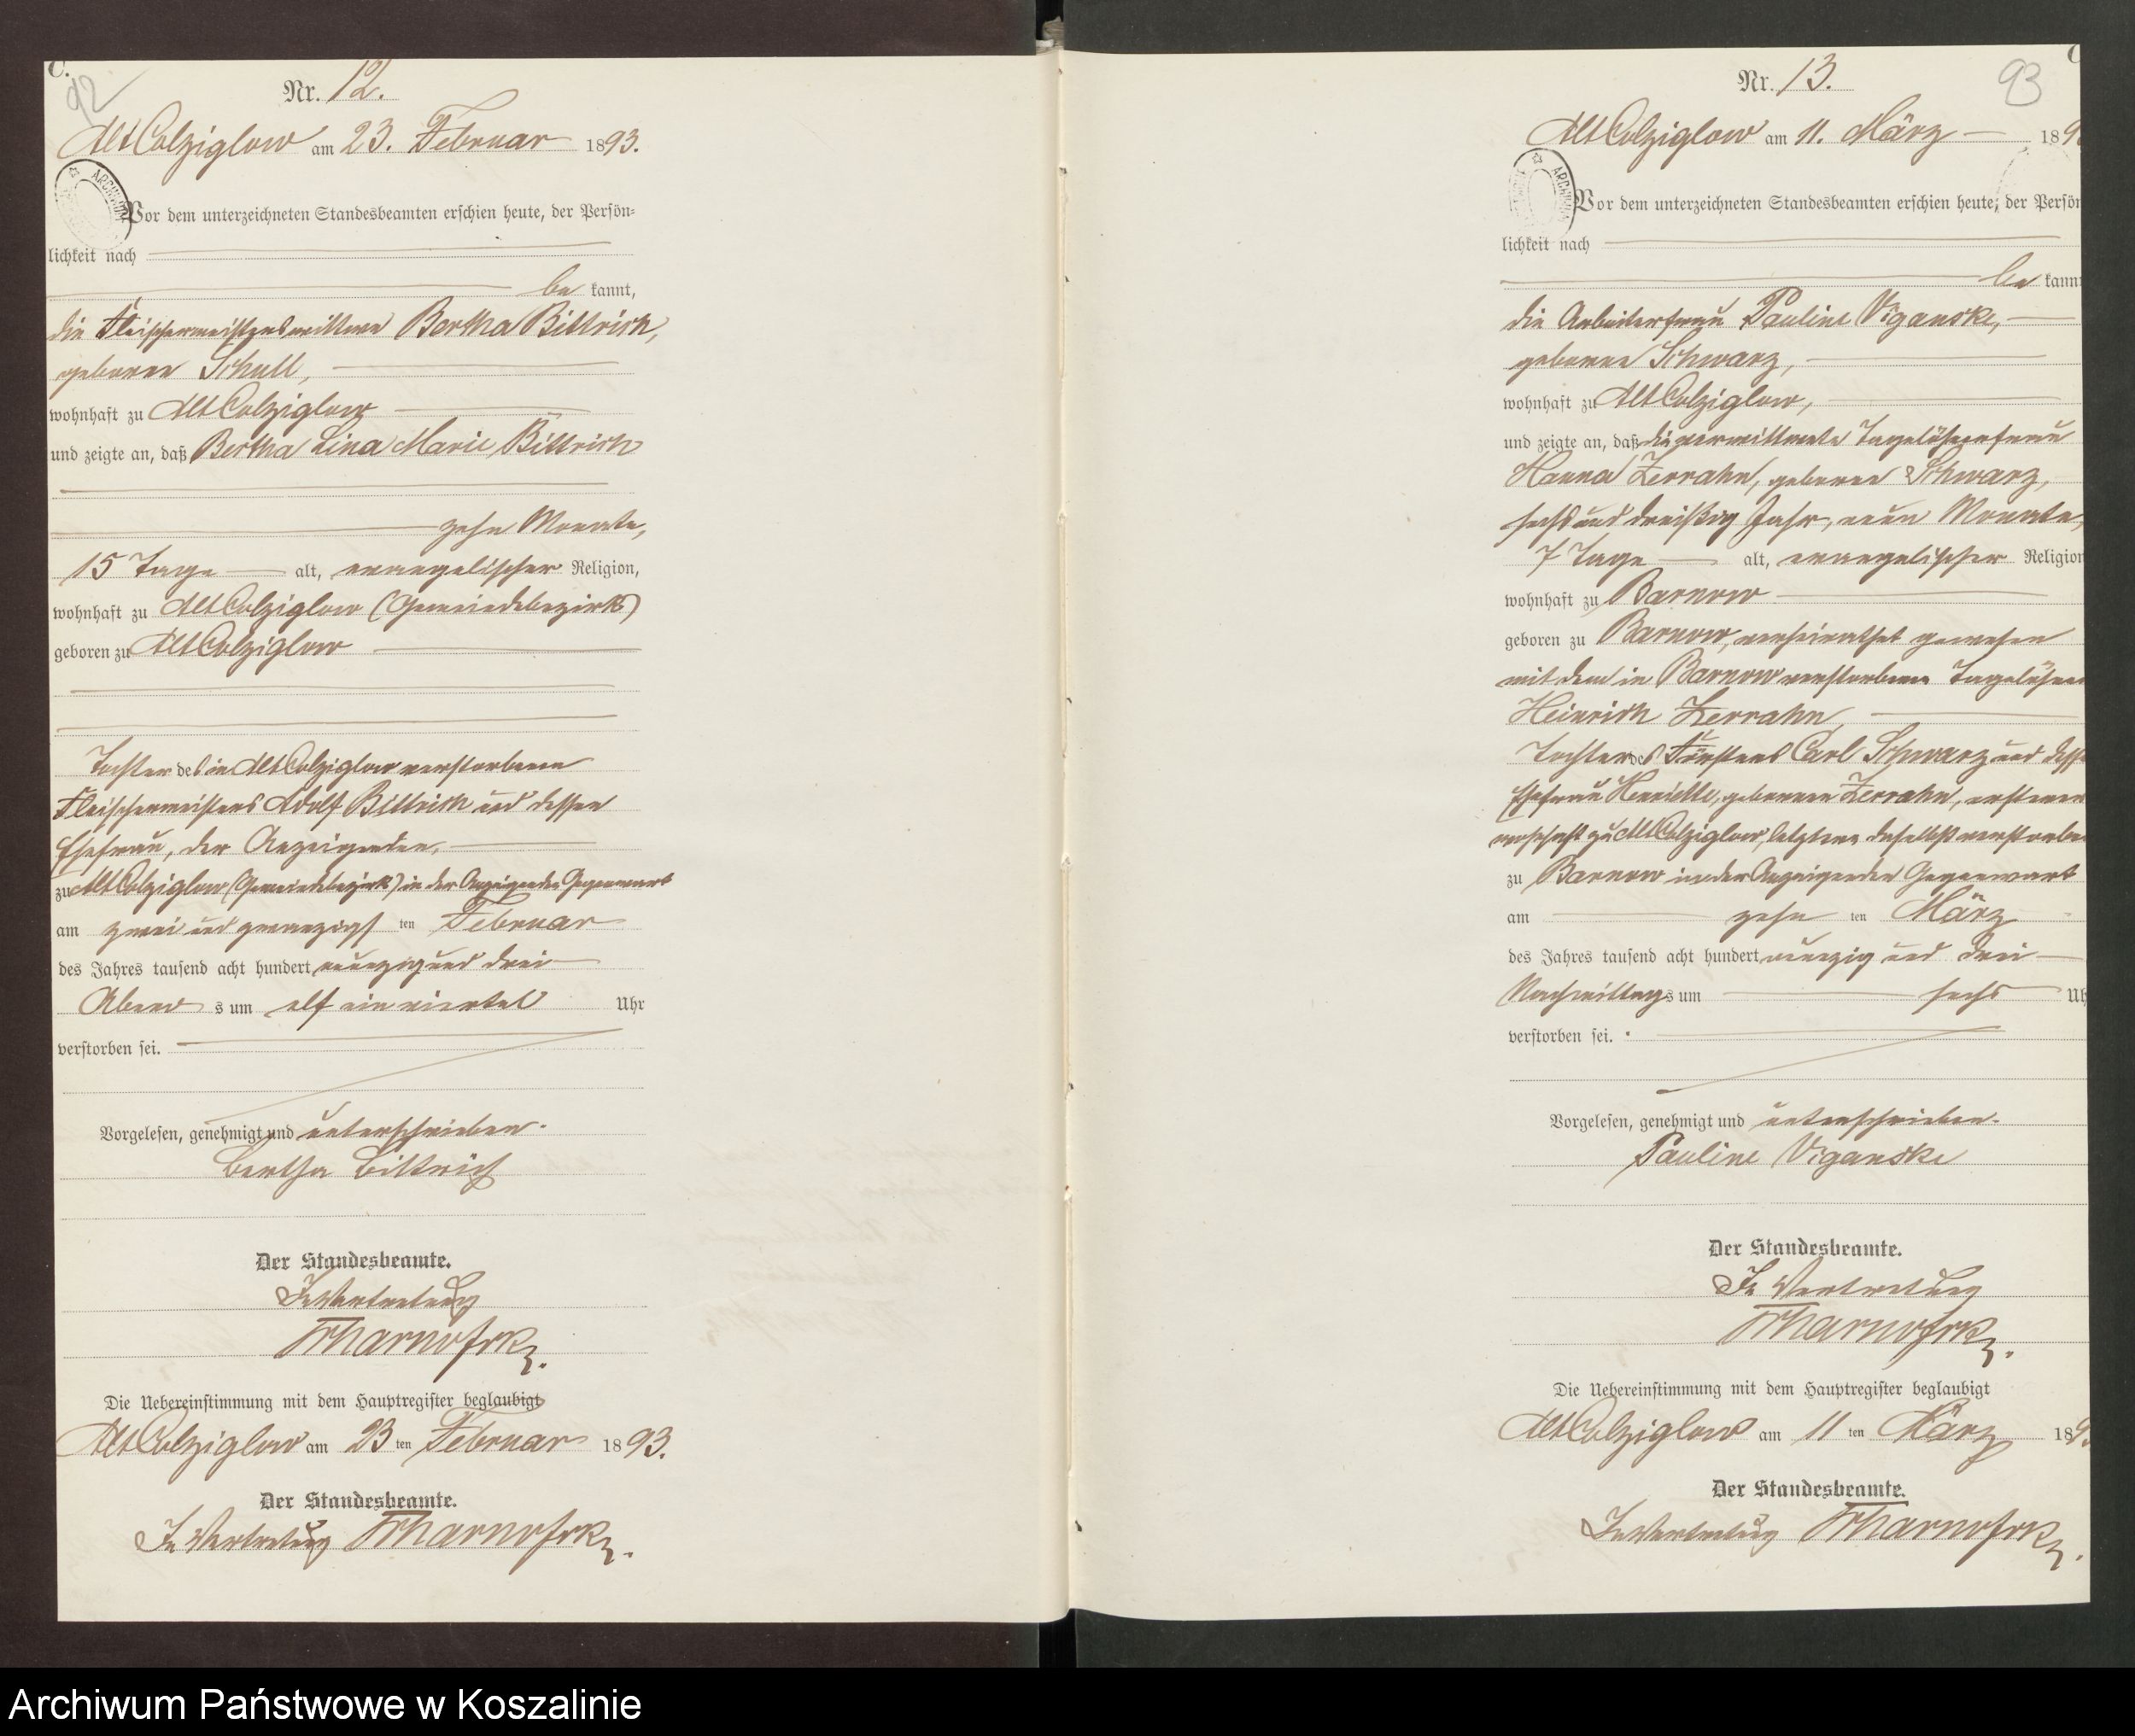 C.
92
Nr. 12.
Alt Colziglow am 23. Februar 1893.
Vor dem unterzeichneten Standesbeamten erschien heute, der Persön=
lichkeit nach
be kannt,
die Fleischermeisterswittwe Bertha Bittrich,
geborene Schull,
wohnhaft zu Alt Colziglow
und zeigte an, daß Bertha Lina Marie Bittrich
zehn Monate,
15 Tage alt, evangelischer Religion,
wohnhaft zu Alt Colziglow (Gemeindebezirk)
geboren zu Alt Colziglow
Tochter des in Alt Colziglow verstorbenen
Fleischermeisters Adolf Bittrich und dessen
Ehefrau, der Anzeigenden,
zu Alt Colziglow (Gemeindebezirk) in der Anzeigenden Gegenwart
am zwei und zwanzigsten Februar
des Jahres tausend acht hundert neunzig und drei
Abends um elf ein viertel Uhr
verstorben sei.
Vorgelesen, genehmigt und unterschrieben.
Bertha Bittrich
Der Standesbeamte.
In Vertretung
Die Uebereinstimmung mit dem Hauptregister beglaubigt
Alt Colziglow am 23 ten Februar 1893.
Der Standesbeamte.
In Vertretung
93
Nr. 13.
Alt Colziglow am 11. März 189
Vor dem unterzeichneten Standesbeamten erschien heute, der Persön
lichkeit nach
be kannt
die Arbeiterfrau Pauline Viganske,
geborene Schwarz,
wohnhaft zu Alt Colziglow,
und zeigte an, daß die verwittwete Tagelöhnerfrau
Hanna Zerrahn, geborene Schwarz,
sechs und dreißig Jahr, neun Monate,
7 Tage alt, evangelischer Religion
wohnhaft zu Barnow
geboren zu Barnow, verheirathet gewesen
mit dem in Barnow verstorbenen Tagelöhner
Heinrich Zerrahn,
Tochter des Försters Carl Schwarz und dessen
Ehefrau Henriette, geborenen Zerrahn, ersterer
wohnhaft zu Alt Colziglow, letztere daselbst verstorben
zu Barnow in der Anzeigenden Gegenwart
am zehn ten März
des Jahres tausend acht hundert neunzig und drei
Nachmittags um sechs Uh
verstorben sei.
Vorgelesen, genehmigt und unterschrieben.
Pauline Viganske
Der Standesbeamte.
In Vertretung
Die Uebereinstimmung mit dem Hauptregister beglaubigt
Alt Colziglow am 11 ten März 189
Der Standesbeamte.
In Vertretung
Archiwum Państwowe w Koszalinie